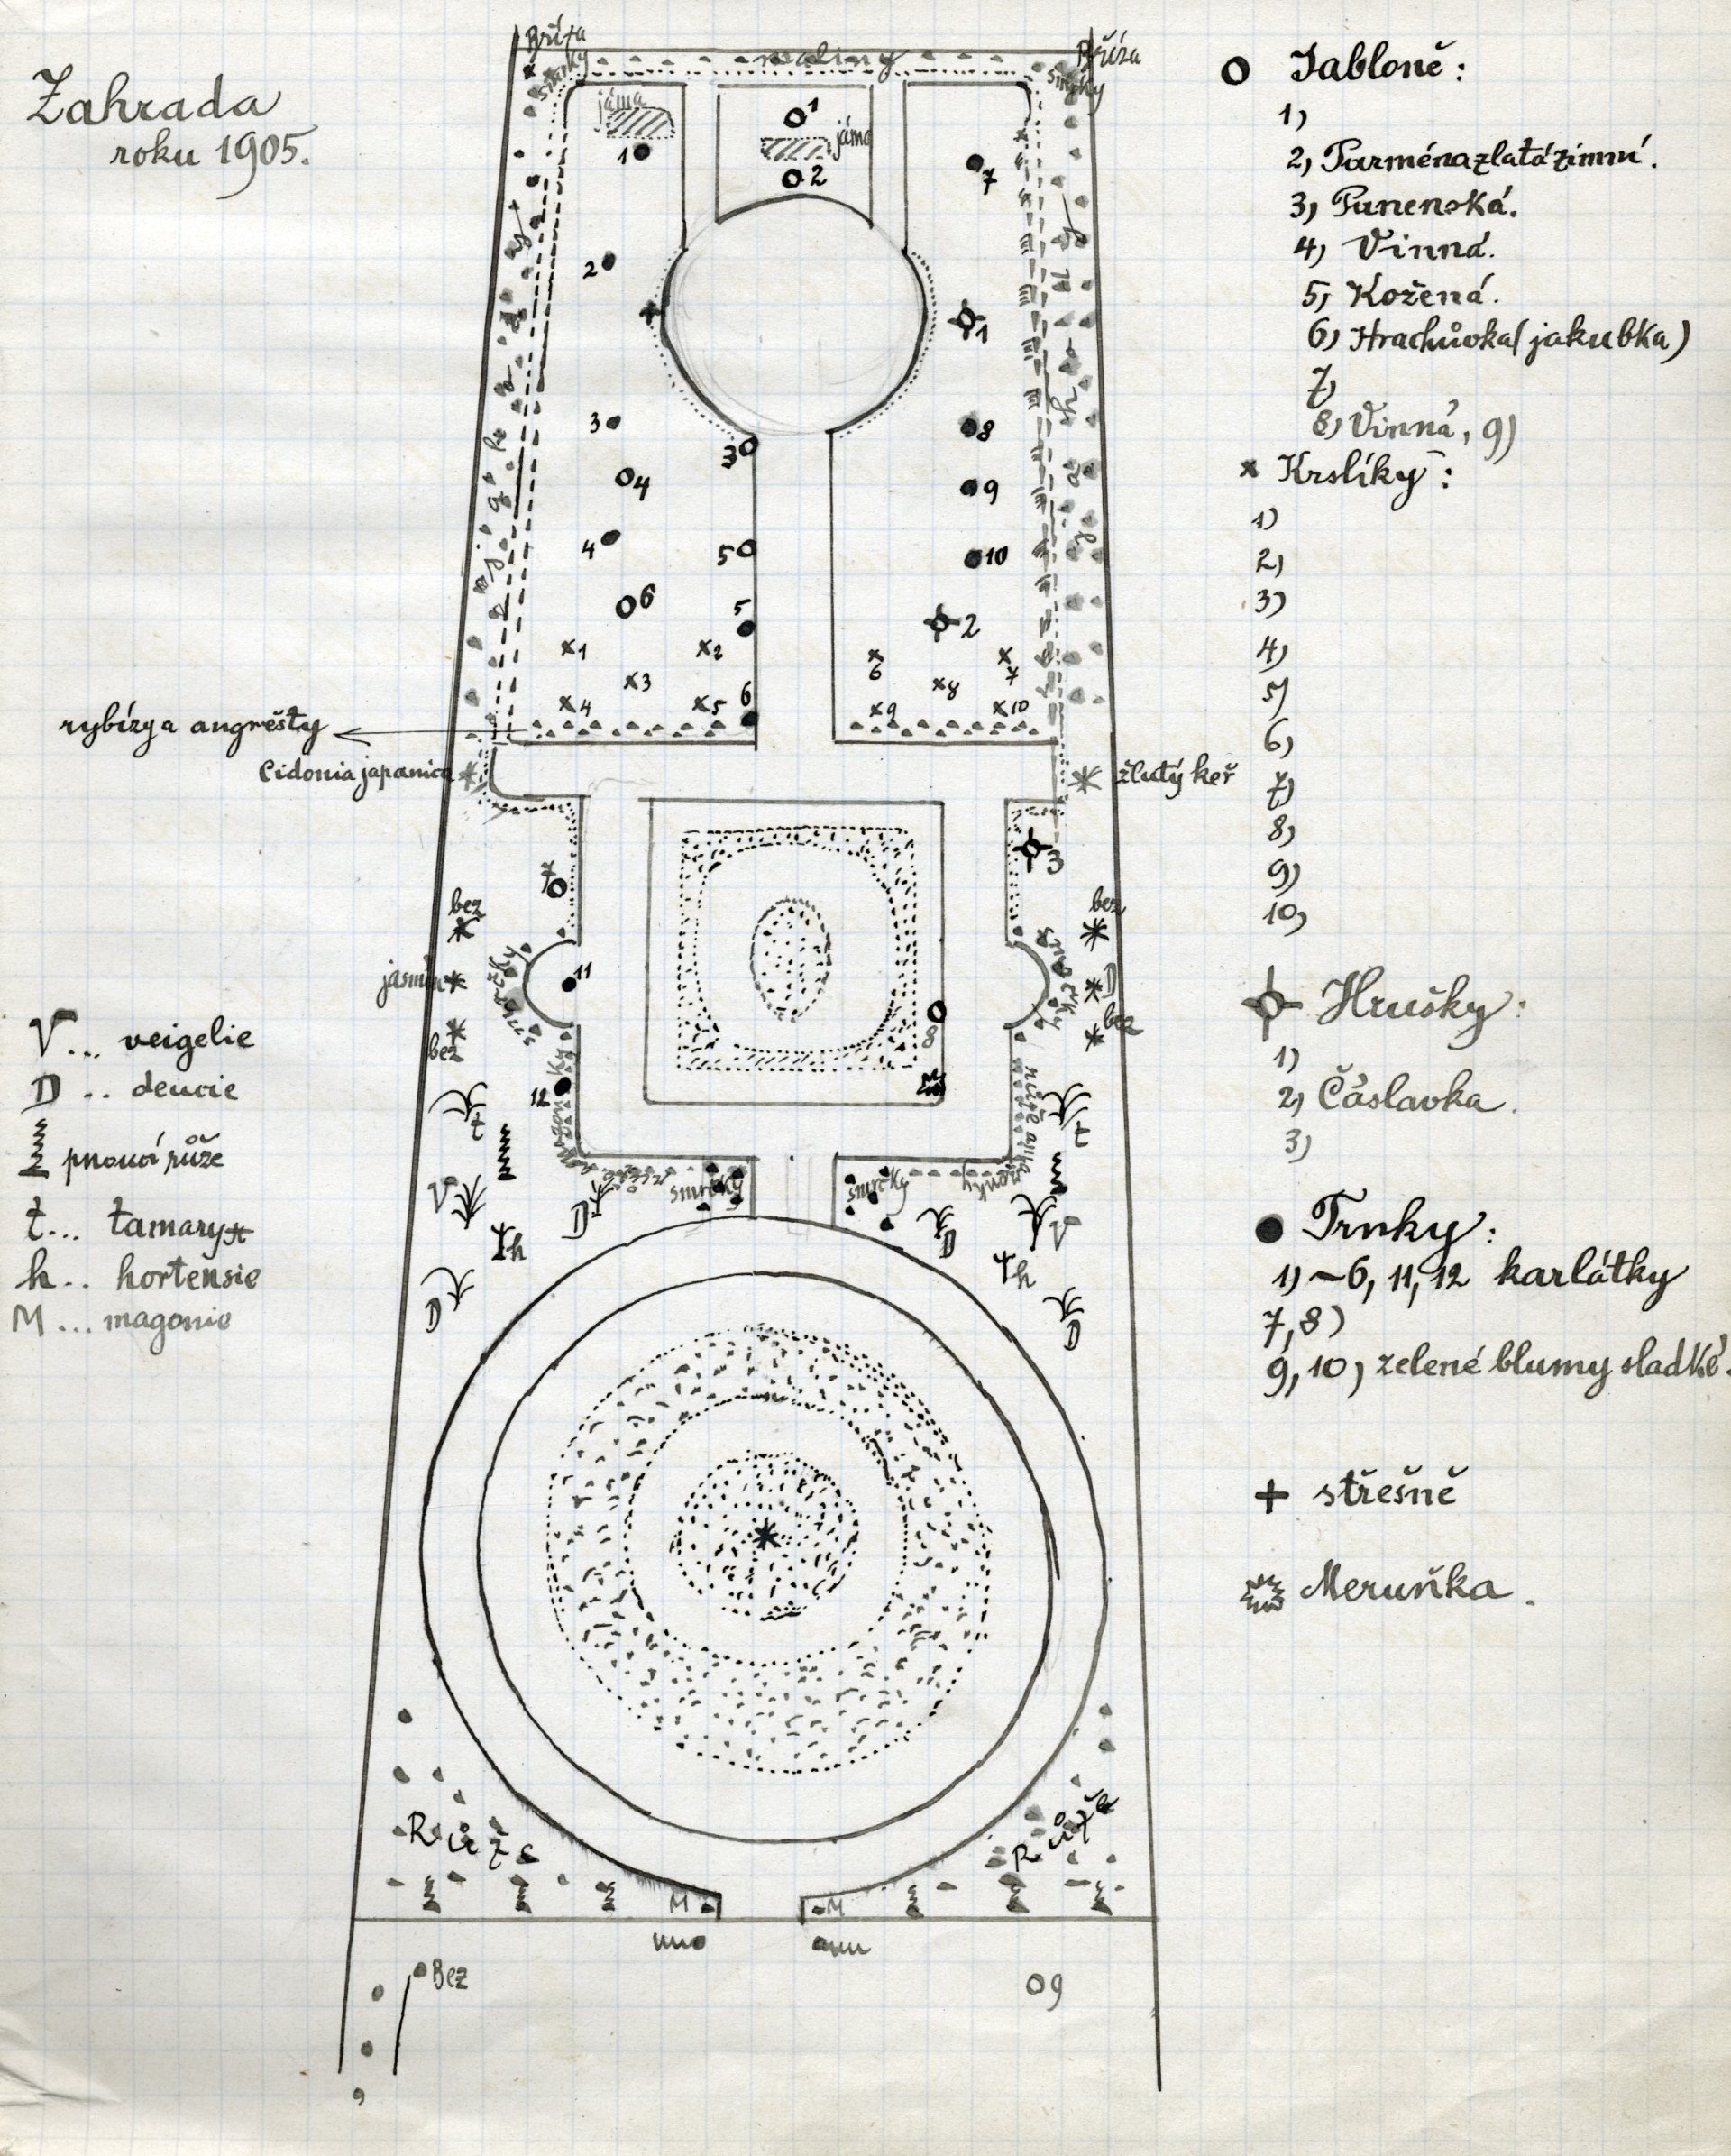 Zahrada
roku 1905.
Bříza
smrky
maliny
Bříza
smrky
jáma
jáma
1
1
2
7
2
1
3
8
3
4
9
4
5
10
6
5
2
1
2
6
7
3
8
4
5
6
9
10
rybízy a angrešty
Cidonia japanica
žlutý keř
7
3
bez
bez
jasmín
11
D
bez
bez
8
12
t
t
smrčky
smrčky
V
D
D
V
h
h
D
D
Růže
Růže
M
M
Bez
9
V... veigelie
D .. deucie
pnoucí růže
t... tamaryšt
h.. hortensie
M... magonie
Jabloně:
1)
2) Parména zlatá zimní.
3) Panenská.
4) Vinná.
5) Kožená.
6) Hrachůvka (jakubka)
7)
8) Vinná, 9)
Krslíky:
1)
2)
3)
4)
5)
6)
7)
8)
9)
10)
Hrušky:
1)
2) Čáslavka.
3)
Trnky:
1)~6, 11, 12 karlátky
7, 8)
9, 10) zelené blumy sladké.
střešně
Meruňka.